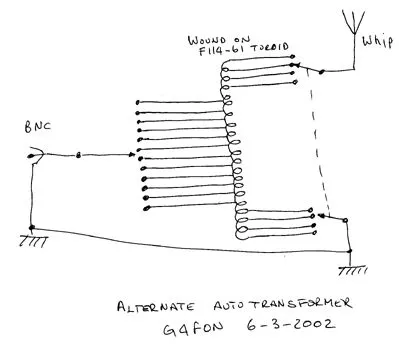 WOUND ON
F114-61 TOROID
WHIP
BNC
ALTERNATE AUTOTRANSFORMER
G4FON 6-3-2002